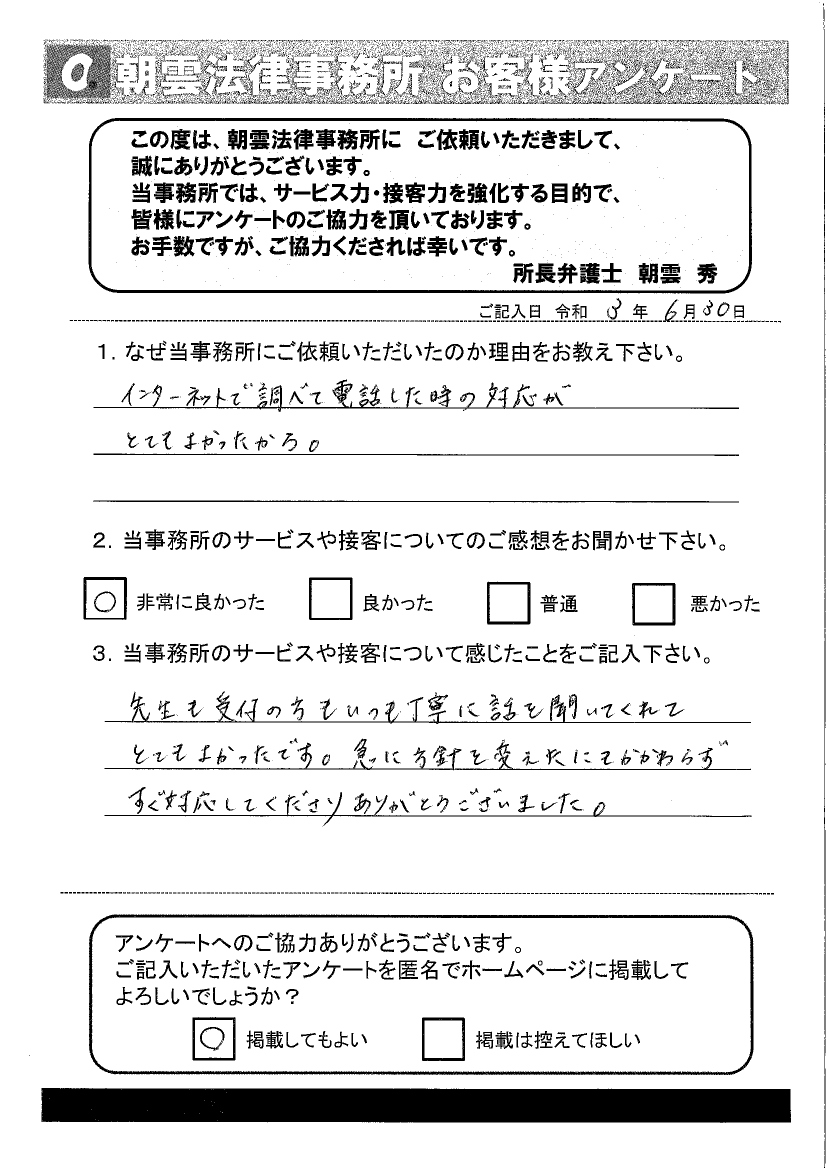 a. 朝雲法律事務所 お客様アンケート
この度は、朝雲法律事務所に ご依頼いただきまして、
誠にありがとうございます。
当事務所では、サービス力・接客力を強化する目的で、
皆様にアンケートのご協力を頂いております。
お手数ですが、ご協力くだされば幸いです。
所長弁護士 朝雲 秀
ご記入日 令和 3 年 6月30日
1. なぜ当事務所にご依頼いただいたのか理由をお教え下さい。
インターネットで調べて電話した時の対応が
とてもよかったから。
2. 当事務所のサービスや接客についてのご感想をお聞かせ下さい。
○ 非常に良かった 良かった 普通 悪かった
3. 当事務所のサービスや接客について感じたことをご記入下さい。
先生も受付の方もいつも丁寧に話を聞いてくれて
とてもよかったです。急に方針を変えたにもかかわらず
すぐ対応してくださりありがとうございました。
アンケートへのご協力ありがとうございます。
ご記入いただいたアンケートを匿名でホームページに掲載して
よろしいでしょうか？
○ 掲載してもよい 掲載は控えてほしい